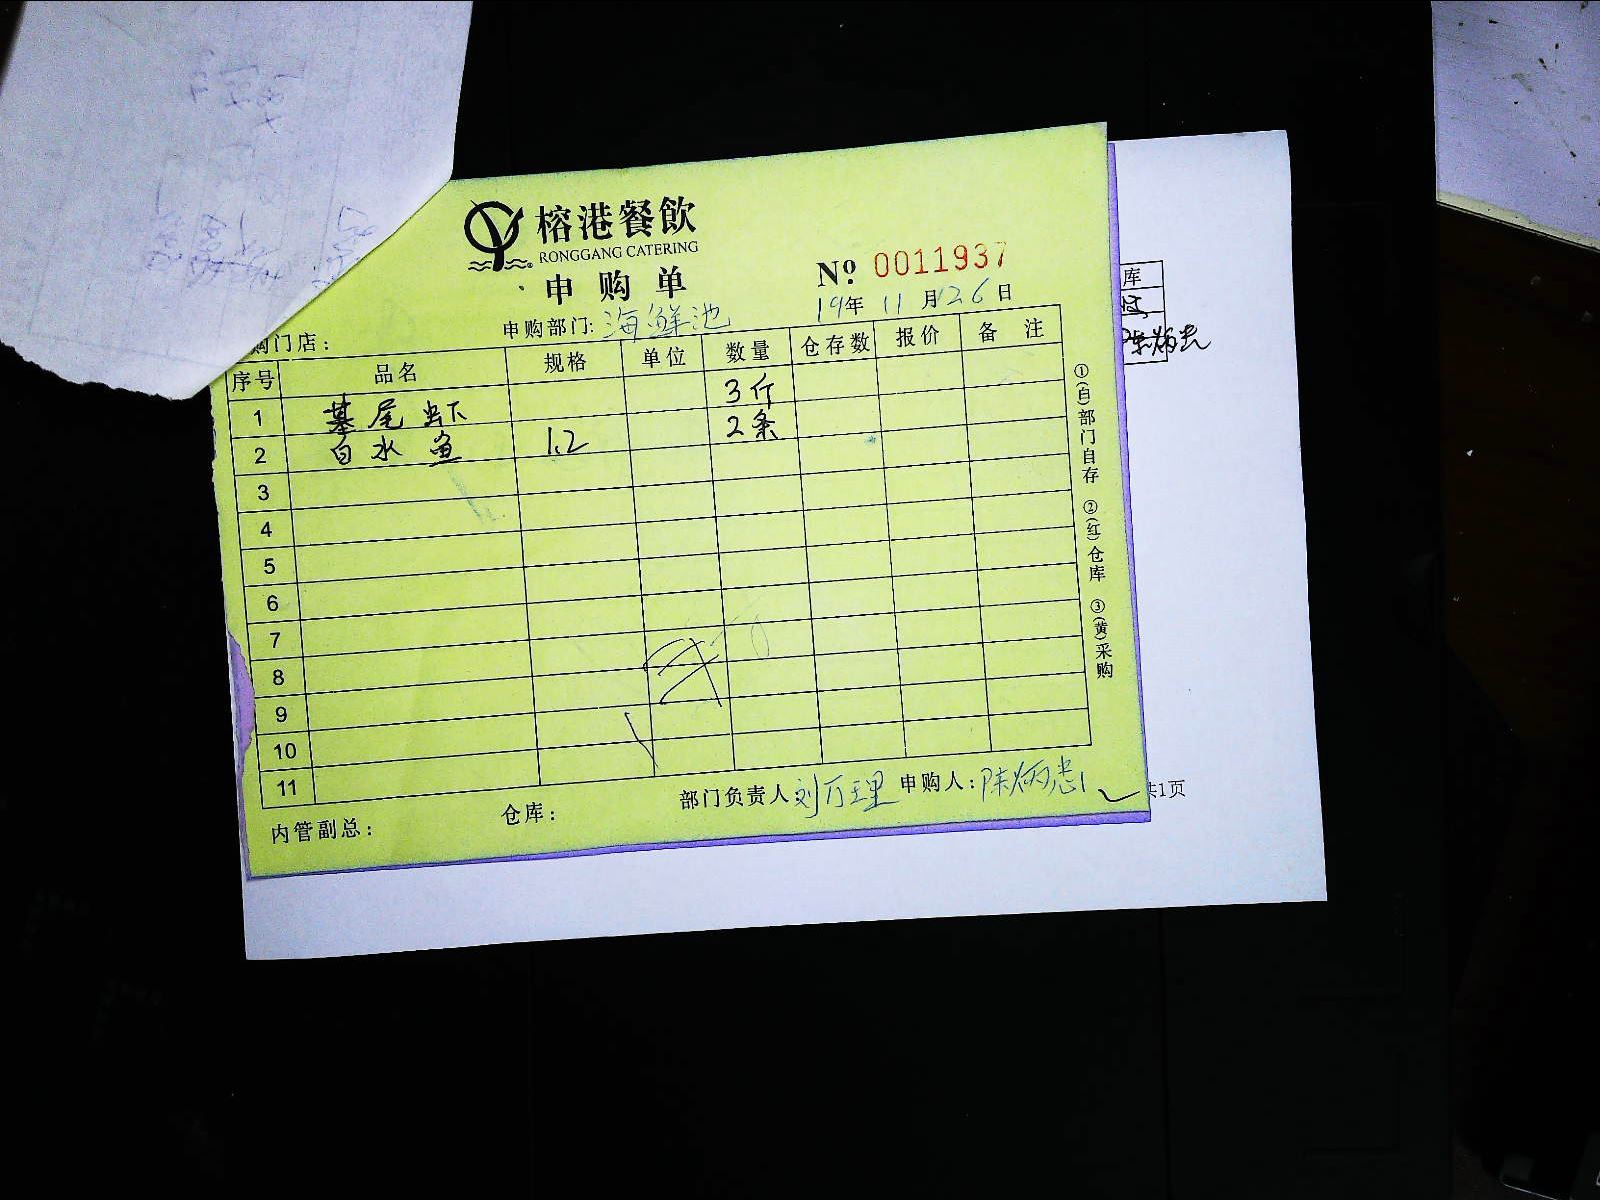 榕港餐飲
RONGGANG CATERING
申购单
№ 0011937
19年 11月26日
购门店：
申购部门: 海鲜池
序号 品名 规格 单位 数量 仓存数 报价 备注
1 基尾虾 3斤
2 白水鱼 1.2 2条
3
4
5
6
7
8
9
10
11
内管副总： 仓库： 部门负责人 刘万理 申购人：陈炳忠
①(白)部门自存 ②(红)仓库 ③(黄)采购
库
共1页